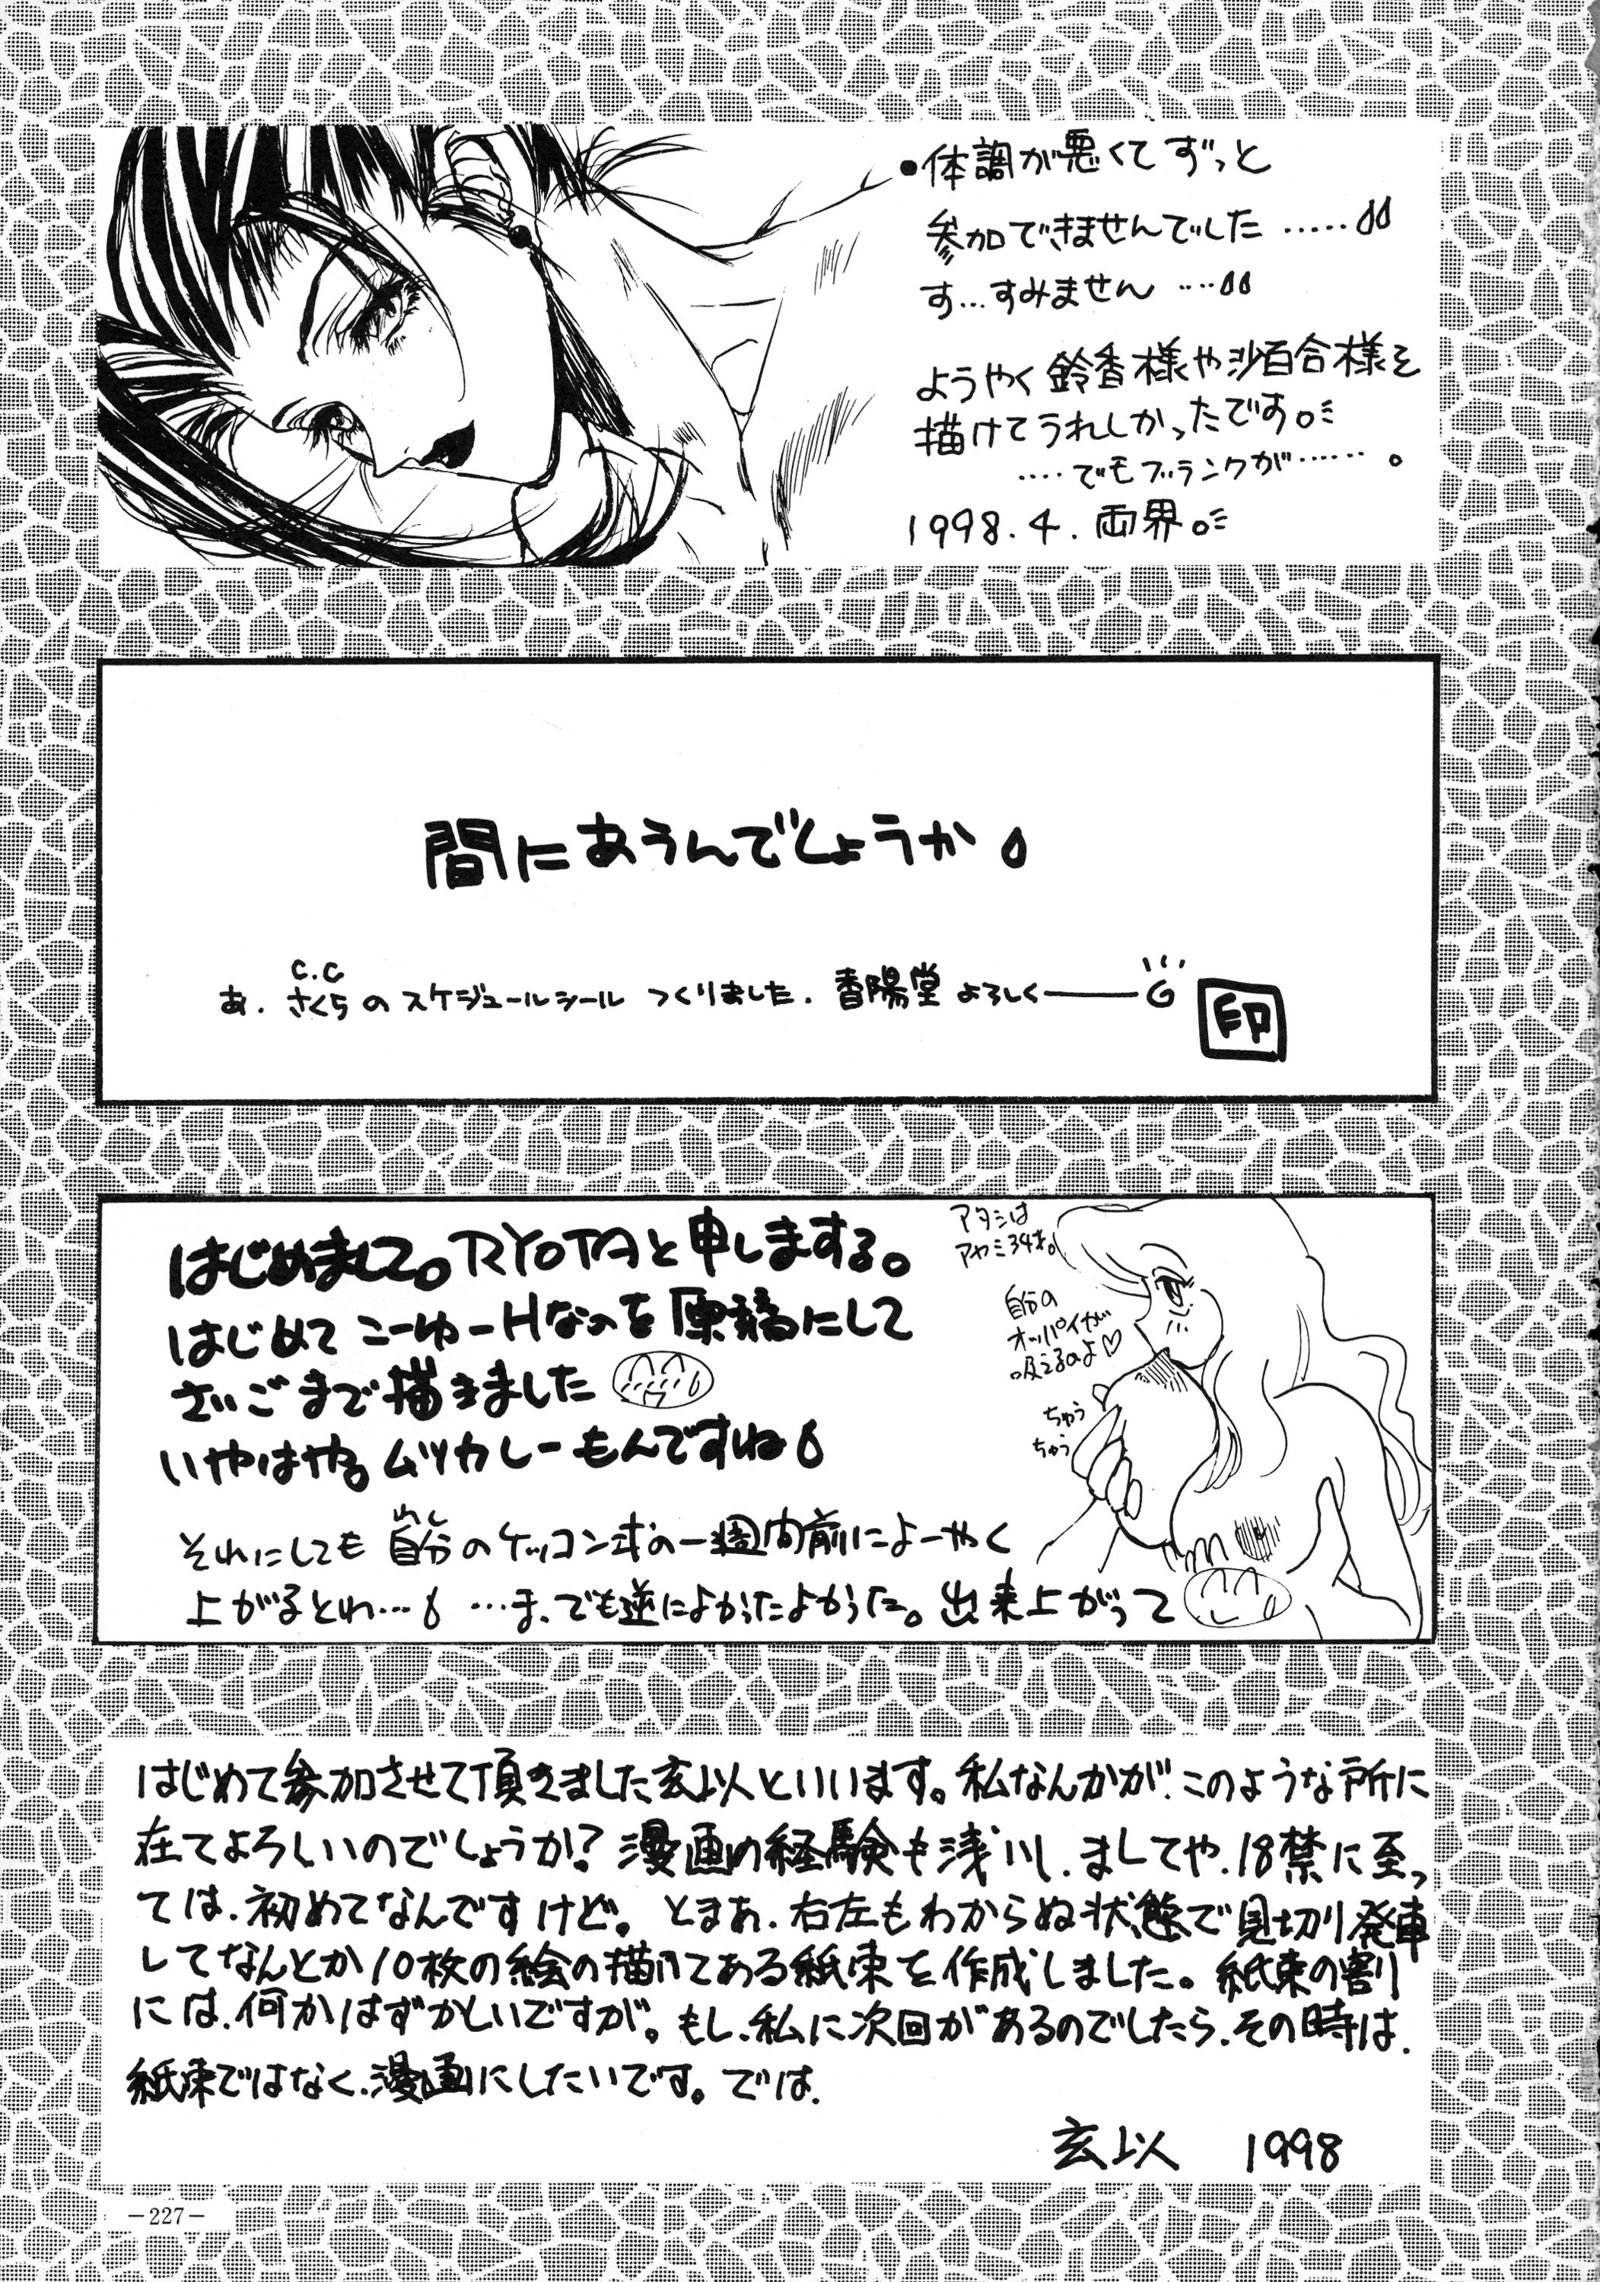 ●体調が悪くてずっと
参加できませんでした……
す…すみません……
ようやく鈴香様や沙百合様を
描けてうれしかったです。
……でもブランクが……。
1998.4.両界。
間にあうんでしょうか。
C.C
あ.さくらのスケジュールシールつくりました.香陽堂よろしく――
印
はじめまして。RYOTAと申しまする。
はじめてこーゆーHなのを原稿にして
さいごまで描きました
いやはや。ムツカしーもんですね
それにしても自分のケッコン式の一週間前によーやく
上がるとわ… …ま、でも逆によかったよかった。出来上がって
アタシは
アヤミ34才。
自分の
オッパイが
吸えるのよ♡
ちゅう
ちゅう
はじめて参加させて頂きました玄以といいます。私なんかが、このような所に
在てよろしいのでしょうか?漫画の経験も浅いし、ましてや、18禁に至っ
ては、初めてなんですけど。とまぁ、右左もわからぬ状態で見切り発車
してなんとか10枚の絵の描いてある紙束を作成しました。紙束の割り
には、何かはずかしいですが。もし、私に次回があるのでしたら、その時は、
紙束ではなく、漫画にしたいです。では、
玄以 1998
－227－